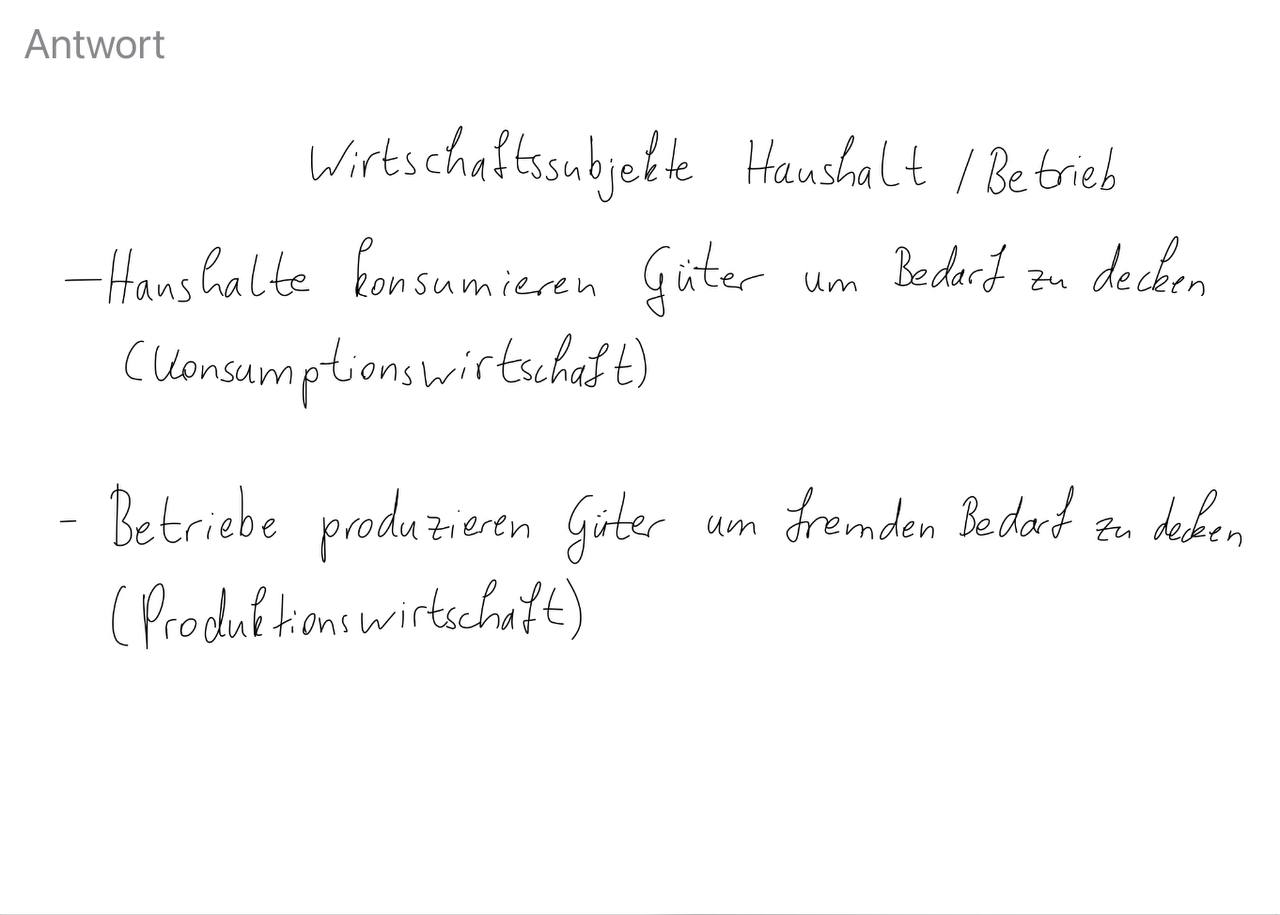 Antwort
Wirtschaftssubjekte Haushalt / Betrieb
- Haushalte konsumieren Güter um Bedarf zu decken
(Konsumptionswirtschaft)
- Betriebe produzieren Güter um fremden Bedarf zu decken
(Produktionswirtschaft)